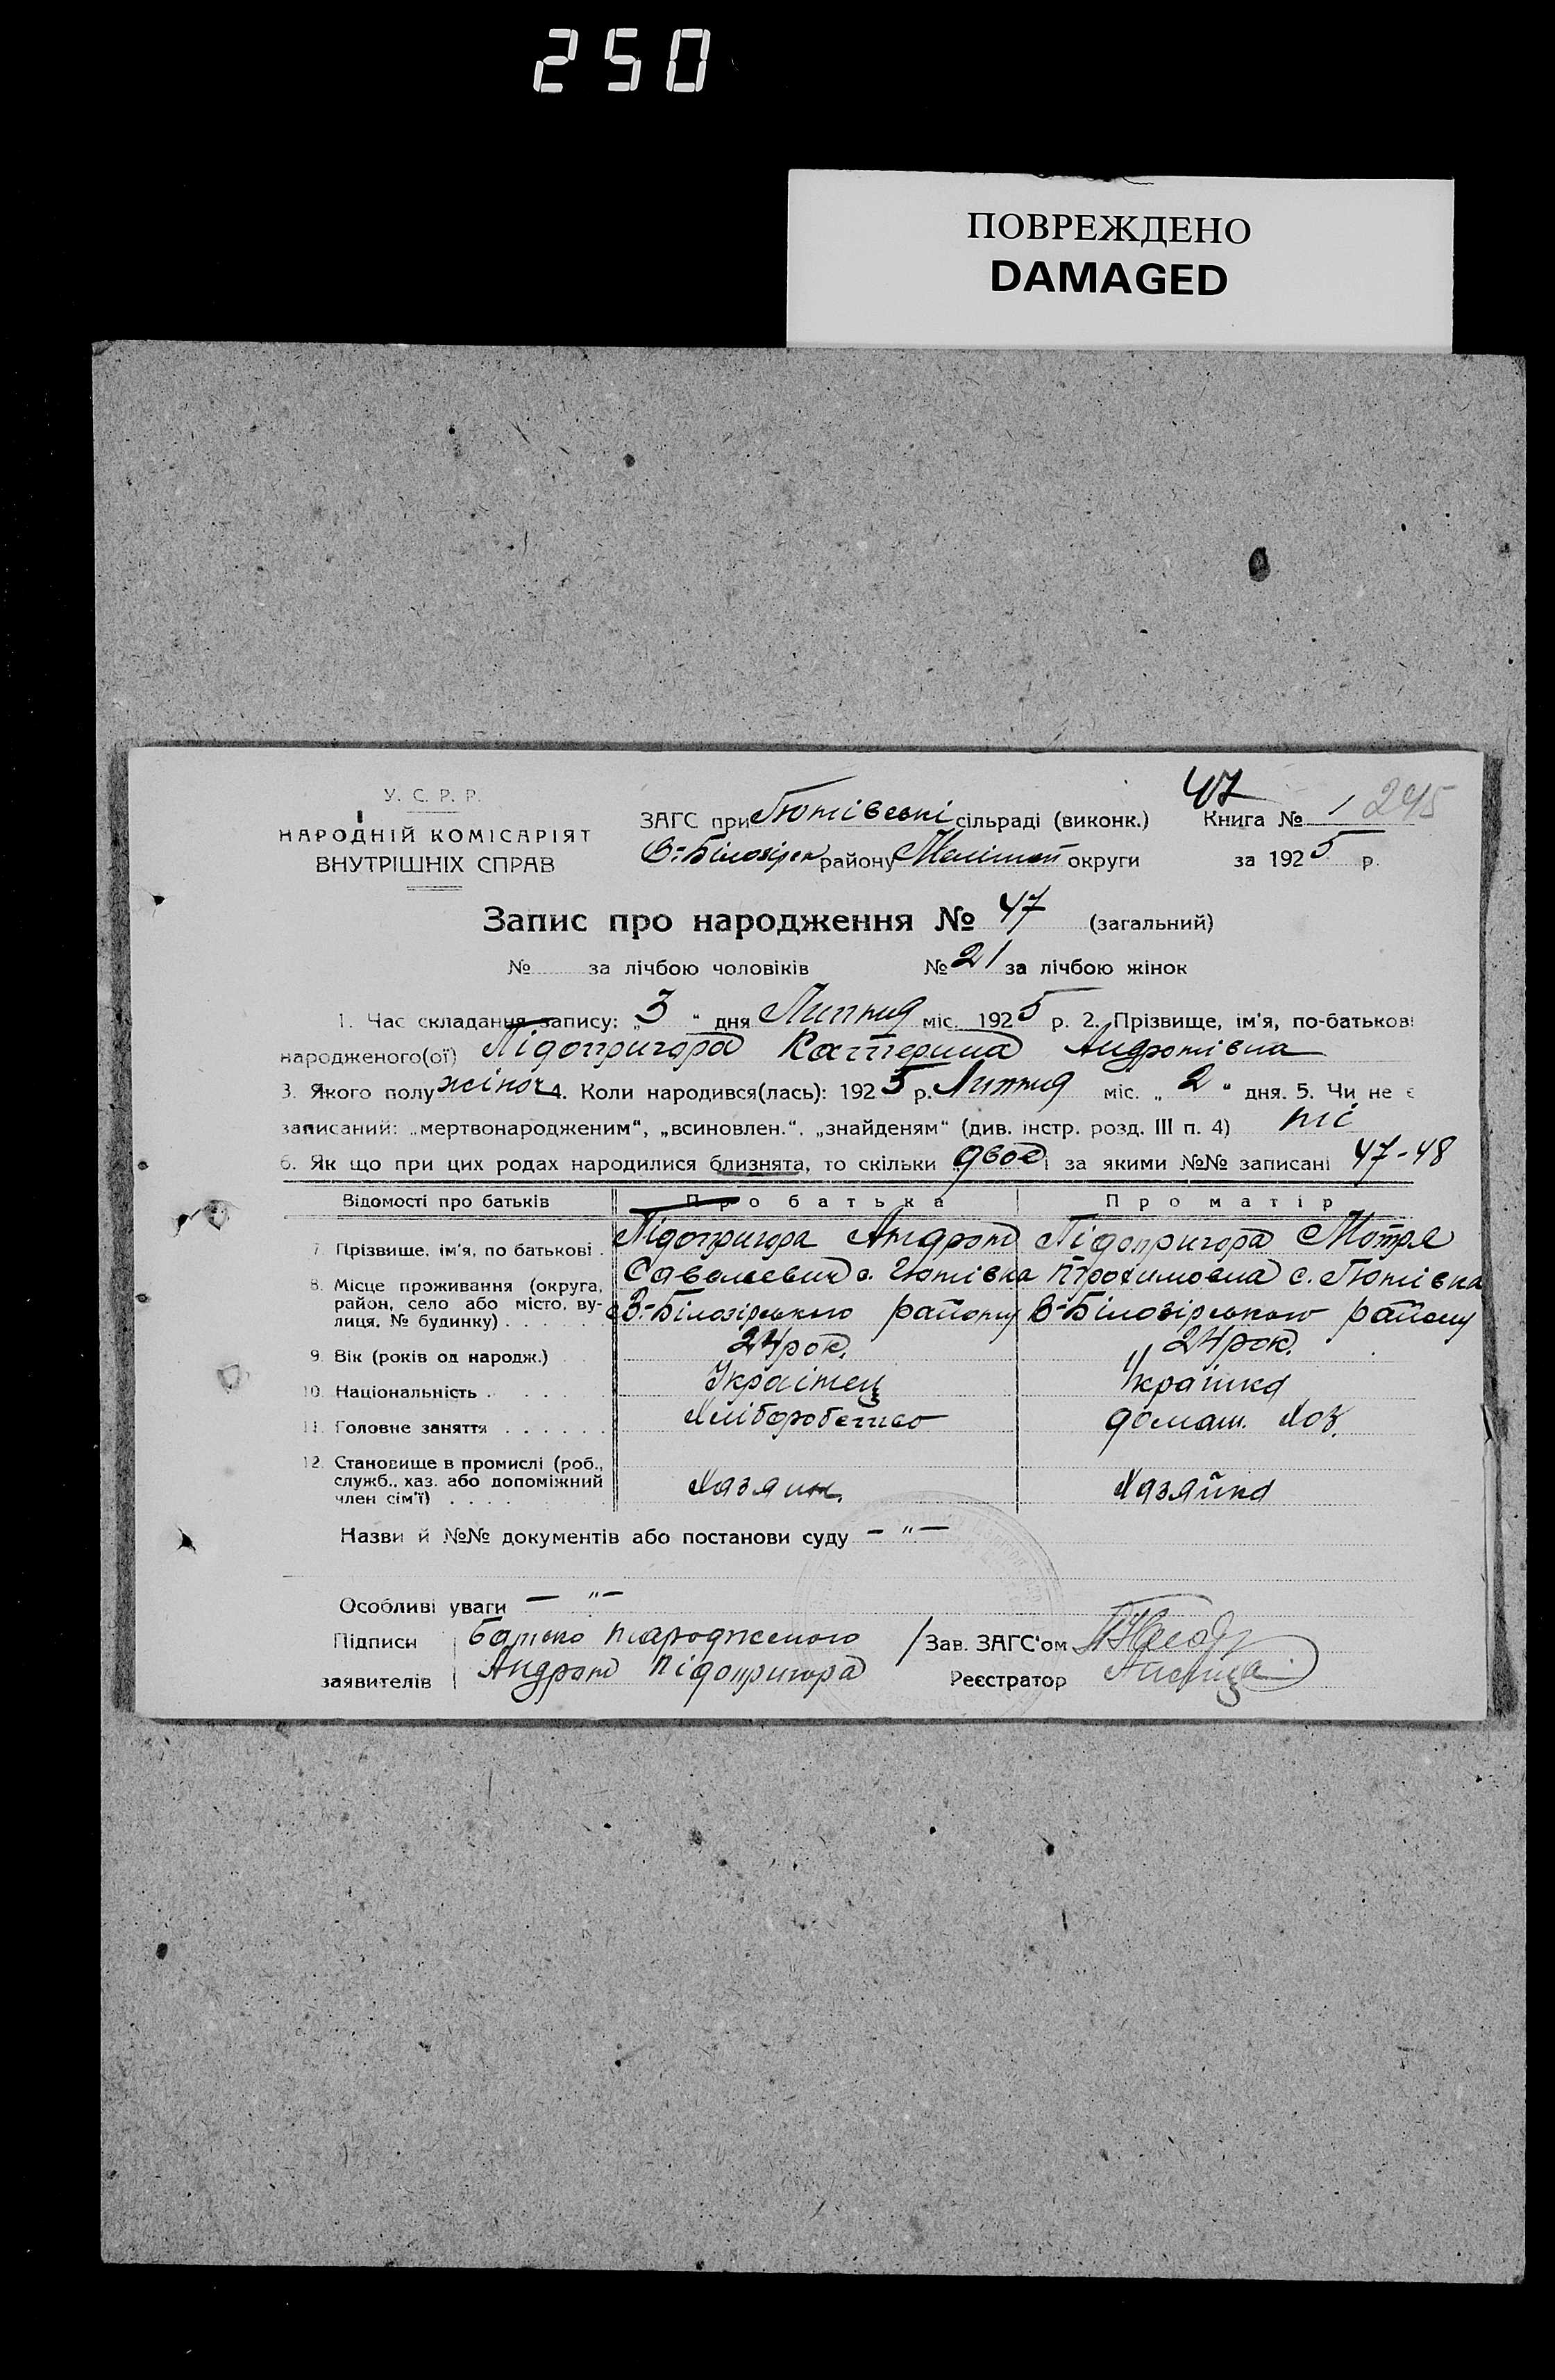 250
ПОВРЕЖДЕНО
DAMAGED
47
245
У. С. Р. Р.
НАРОДНІЙ КОМІСАРІЯТ
ВНУТРІШНІХ СПРАВ
ЗАГС при Гютівські сільраді (виконк.) Книга № 1
В-Білозірск району Мелітоп округи за 1925 р.
Запис про народження № 47 (загальний)
№ за лічбою чоловіків № 21 за лічбою жінок
1. Час складання запису: „3“ дня Липня міс. 1925 р. 2. Прізвище, ім'я, по-батькові
народженого(ої) Підопригора Катерина Андронівна
3. Якого полу жіноч 4. Коли народився(лась): 1925 р. Липня міс. „2“ дня. 5. Чи не є
записаний: „мертвонародженим“, „всиновлен.“, „знайденям“ (див. інстр. розд. III п. 4) ні
6. Як що при цих родах народилися близнята, то скільки двоє і за якими №№ записані 47-48
Відомості про батьків Про батька Про матір
7. Прізвище, ім'я, по батькові . Підопригора Андрон Підопригора Мотря
8. Місце проживання (округа, Савелевич с. Гютівка Трохимовна с. Гютівка
район, село або місто, ву-
лиця, № будинку) . . . . . В-Білозірського району В-Білозірського району
9. Вік (років од народж.) 24 рок. 24 рок.
10. Національність . . . . Українец Українка
11. Головне заняття . . . . . . Хліборобство домаш. хоз.
12. Становище в промислі (роб.,
служб., хаз. або допоміжний
член сім'ї) . . . . Хазяин. Хазяйка
Назви й №№ документів або постанови суду – " –
Особливі уваги – " –
Підписи батько народженого / Зав. ЗАГС'ом
заявителів Андрон Підопригора Реєстратор